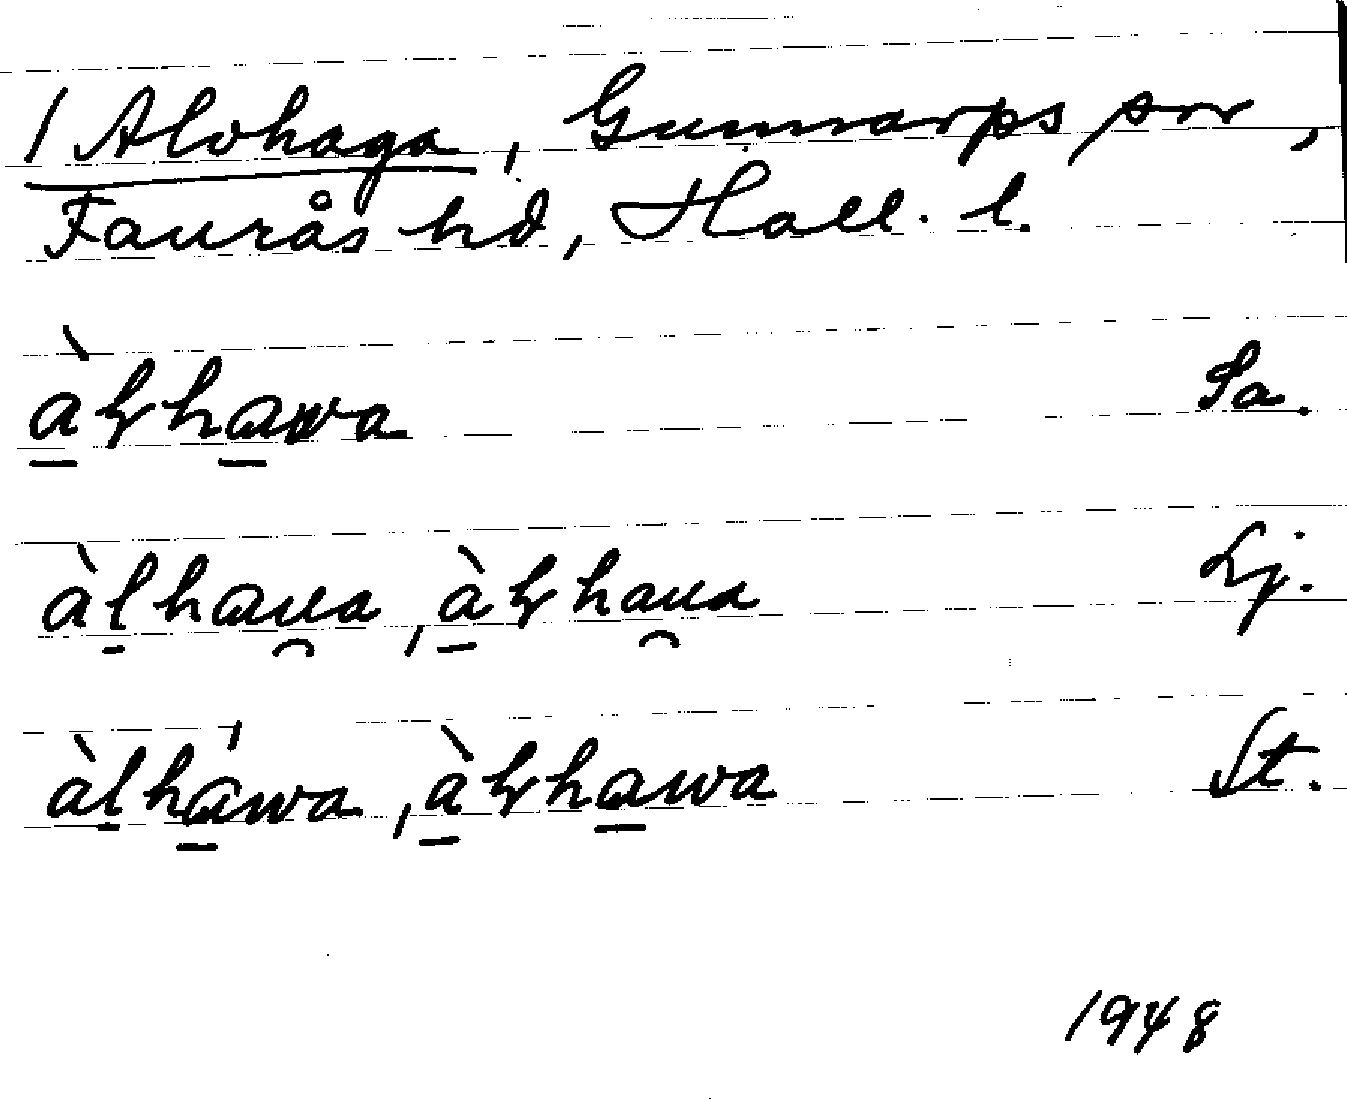 1 Alvhaga, Gunnarps sn,
Faurås hd, Hall. l.
àlhawa Sa.
àlhaua, àlhaua Lj.
àlháwa, àlhawa St.
1948